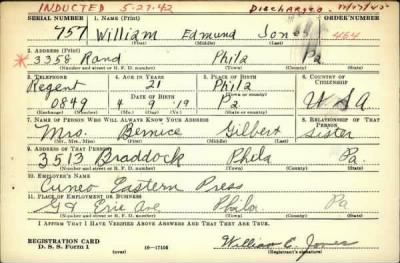 INDUCTED 5-27-42 Discharged
SERIAL NUMBER 1. NAME (Print) ORDER NUMBER
757 William Edmund Jones 464
(First) (Middle) (Last)
2. ADDRESS (Print)
* 3358 Rand Phila Pa
(Number and street or R. F. D. number) (Town) (County) (State)
3. TELEPHONE 4. AGE IN YEARS 5. PLACE OF BIRTH 6. COUNTRY OF CITIZENSHIP
Regent 21 Phila
DATE OF BIRTH
0849 4 9 19 Pa U S A
(Mo.) (Day) (Yr.)
7. NAME OF PERSON WHO WILL ALWAYS KNOW YOUR ADDRESS 8. RELATIONSHIP OF THAT PERSON
Mrs. Bernice Gilbert Sister
(Mr., Mrs., Miss) (First) (Middle) (Last)
9. ADDRESS OF THAT PERSON
3513 Braddock Phila Pa.
(Number and street or R. F. D. number) (Town) (County) (State)
10. EMPLOYER'S NAME
Cuneo Eastern Press
11. PLACE OF EMPLOYMENT OR BUSINESS
G & Erie Ave Phila. Pa
(Number and street or R. F. D. number) (Town) (County) (State)
I AFFIRM THAT I HAVE VERIFIED ABOVE ANSWERS AND THAT THEY ARE TRUE.
REGISTRATION CARD
D. S. S. Form 1 (over) 16-17105 William E. Jones
(Registrant's signature)